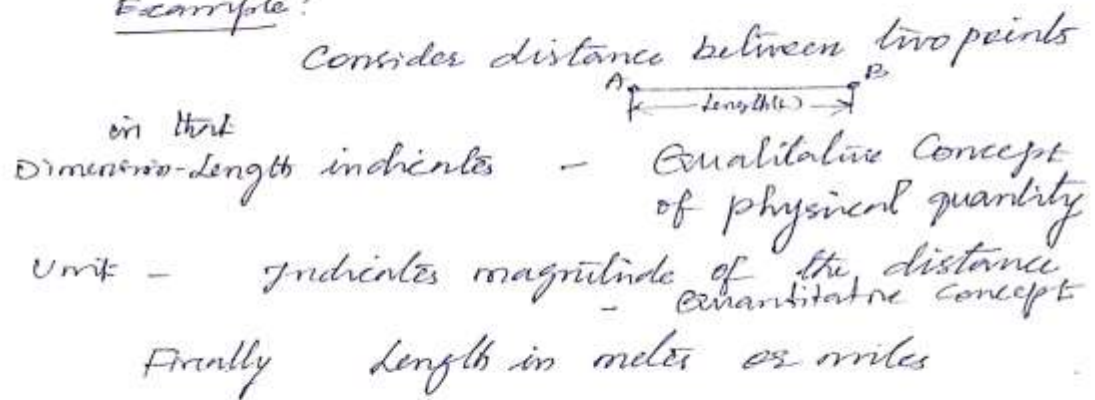 Example:
Consider distance between two points
A B
Length(L)
in that
Dimension-Length indicates - Qualitative Concept
of physical quantity
Unit - Indicates magnitude of the distance
- Quantitative concept
Finally Length in meter or miles